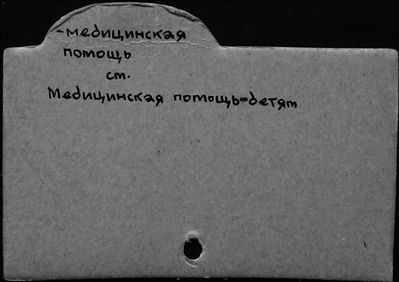 -медицинская
помощь
см.
Медицинская помощь-детям